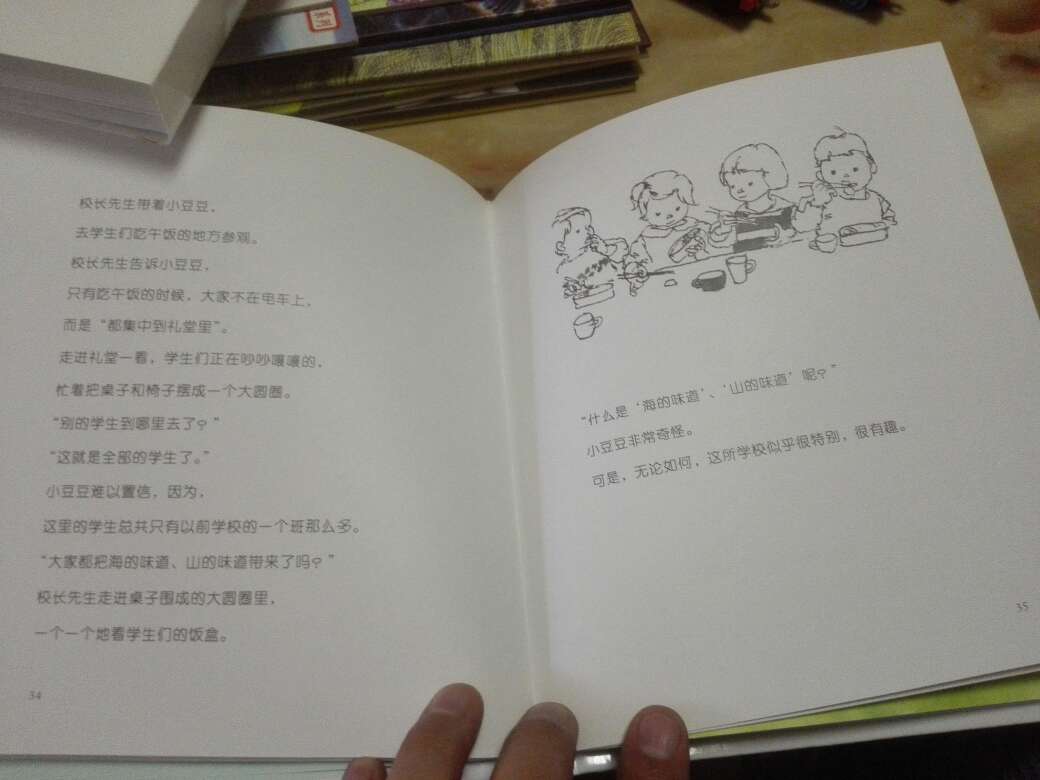 校长先生带着小豆豆，
去学生们吃午饭的地方参观。
校长先生告诉小豆豆，
只有吃午饭的时候，大家不在电车上，
而是“都集中到礼堂里”。
走进礼堂一看，学生们正在吵吵嚷嚷的，
忙着把桌子和椅子摆成一个大圆圈。
“别的学生到哪里去了？”
“这就是全部的学生了。”
小豆豆难以置信，因为，
这里的学生总共只有以前学校的一个班那么多。
“大家都把海的味道、山的味道带来了吗？”
校长先生走进桌子围成的大圆圈里，
一个一个地看学生们的饭盒。
34
“什么是‘海的味道’、‘山的味道’呢？”
小豆豆非常奇怪。
可是，无论如何，这所学校似乎很特别，很有趣。
35